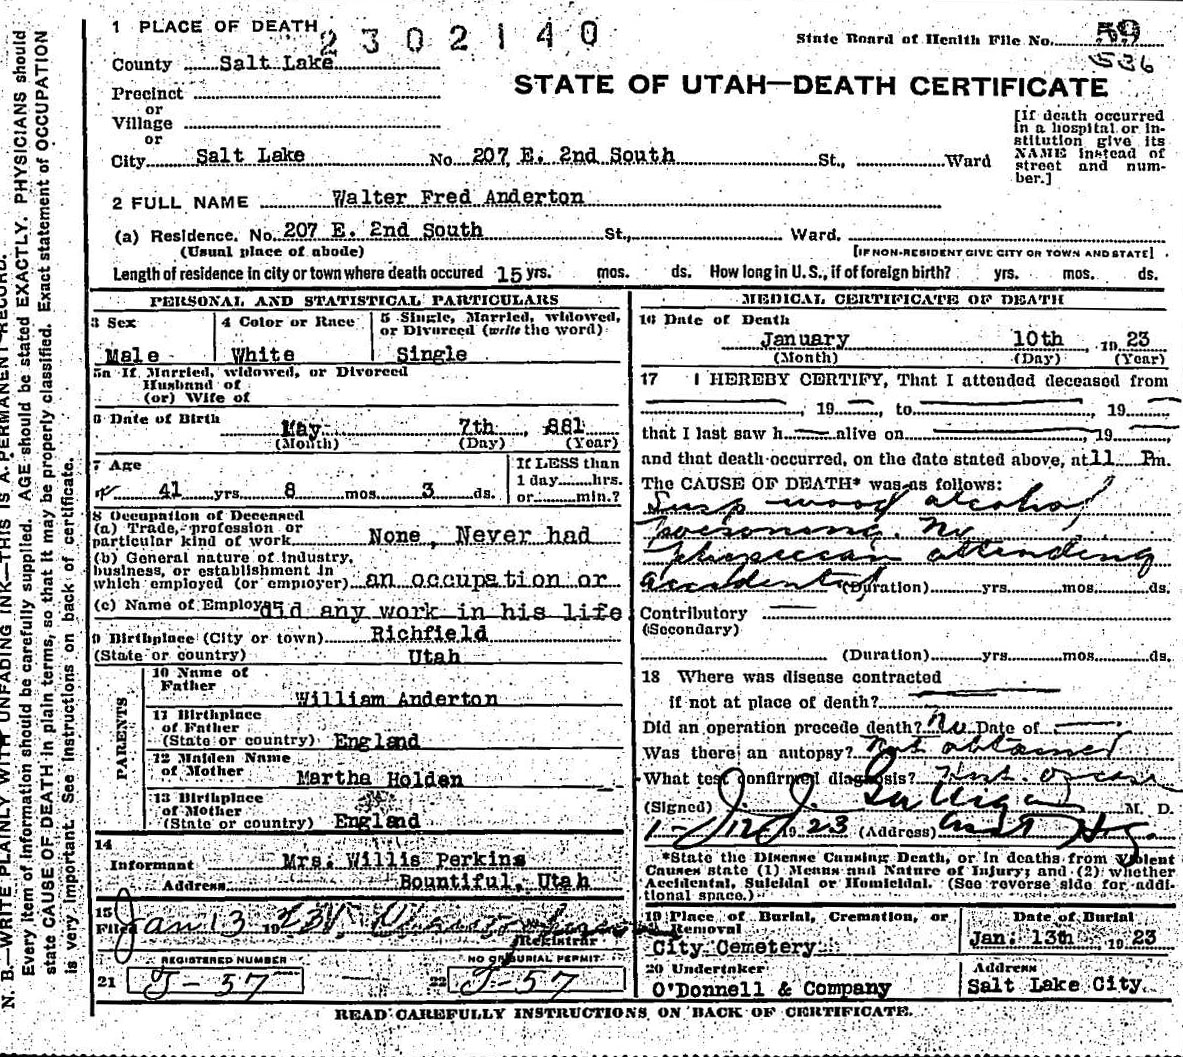 1 PLACE OF DEATH
2302140
State Board of Health File No. 59
536
County Salt Lake
STATE OF UTAH—DEATH CERTIFICATE
Precinct
or
Village
or
City Salt Lake No. 207 E. 2nd South St., Ward
[If death occurred
in a hospital or in-
stitution give its
NAME instead of
street and num-
ber.]
2 FULL NAME Walter Fred Anderton
(a) Residence. No. 207 E. 2nd South St., Ward.
(Usual place of abode) [IF NON-RESIDENT GIVE CITY OR TOWN AND STATE]
Length of residence in city or town where death occured 15 yrs. mos. ds. How long in U. S., if of foreign birth? yrs. mos. ds.
PERSONAL AND STATISTICAL PARTICULARS
3 Sex
Male
4 Color or Race
White
5 Single, Married, widowed,
or Divorced (write the word)
Single
5a If Married, widowed, or Divorced
Husband of
(or) Wife of
6 Date of Birth
May 7th, 881
(Month) (Day) (Year)
7 Age
41 yrs. 8 mos. 3 ds.
If LESS than
1 day......hrs.
or......min.?
8 Occupation of Deceased
(a) Trade, profession or
particular kind of work None, Never had
(b) General nature of industry,
business, or establishment in
which employed (or employer) an occupation or
(c) Name of Employer did any work in his life
9 Birthplace (City or town) Richfield
(State or country) Utah
PARENTS
10 Name of
Father
William Anderton
11 Birthplace
of Father
(State or country) England
12 Maiden Name
of Mother
Martha Holden
13 Birthplace
of Mother
(State or country) England
14
Informant Mrs. Willis Perkins
Address Bountiful, Utah
15
Filed Jan 13 1923
Registrar
REGISTERED NUMBER
21 J-57
NO OF BURIAL PERMIT
22 J-57
MEDICAL CERTIFICATE OF DEATH
16 Date of Death
January 10th 1923
(Month) (Day) (Year)
17 I HEREBY CERTIFY, That I attended deceased from
, 19 , to , 19
that I last saw h alive on , 19
and that death occurred, on the date stated above, at 11 Pm.
The CAUSE OF DEATH* was as follows:
Susp wood alcohol
poisoning. No
physician attending
accidental (Duration) yrs. mos. ds.
Contributory
(Secondary)
(Duration) yrs. mos. ds.
18 Where was disease contracted
if not at place of death?
Did an operation precede death? No Date of
Was there an autopsy? Not obtained
What test confirmed diagnosis?
(Signed) J. J. Galligan M. D.
1-12 1923 (Address)
*State the Disease Causing Death, or in deaths from Violent
Causes state (1) Means and Nature of Injury; and (2) whether
Accidental, Suicidal or Homicidal. (See reverse side for addi-
tional space.)
19 Place of Burial, Cremation, or
Removal
City Cemetery
Date of Burial
Jan. 13th 1923
20 Undertaker
O'Donnell & Company
Address
Salt Lake City
READ CAREFULLY INSTRUCTIONS ON BACK OF CERTIFICATE.
N. B.—WRITE PLAINLY WITH UNFADING INK—THIS IS A PERMANENT RECORD.
Every item of information should be carefully supplied. AGE should be stated EXACTLY. PHYSICIANS should
state CAUSE OF DEATH in plain terms, so that it may be properly classified. Exact statement of OCCUPATION
is very important. See instructions on back of certificate.